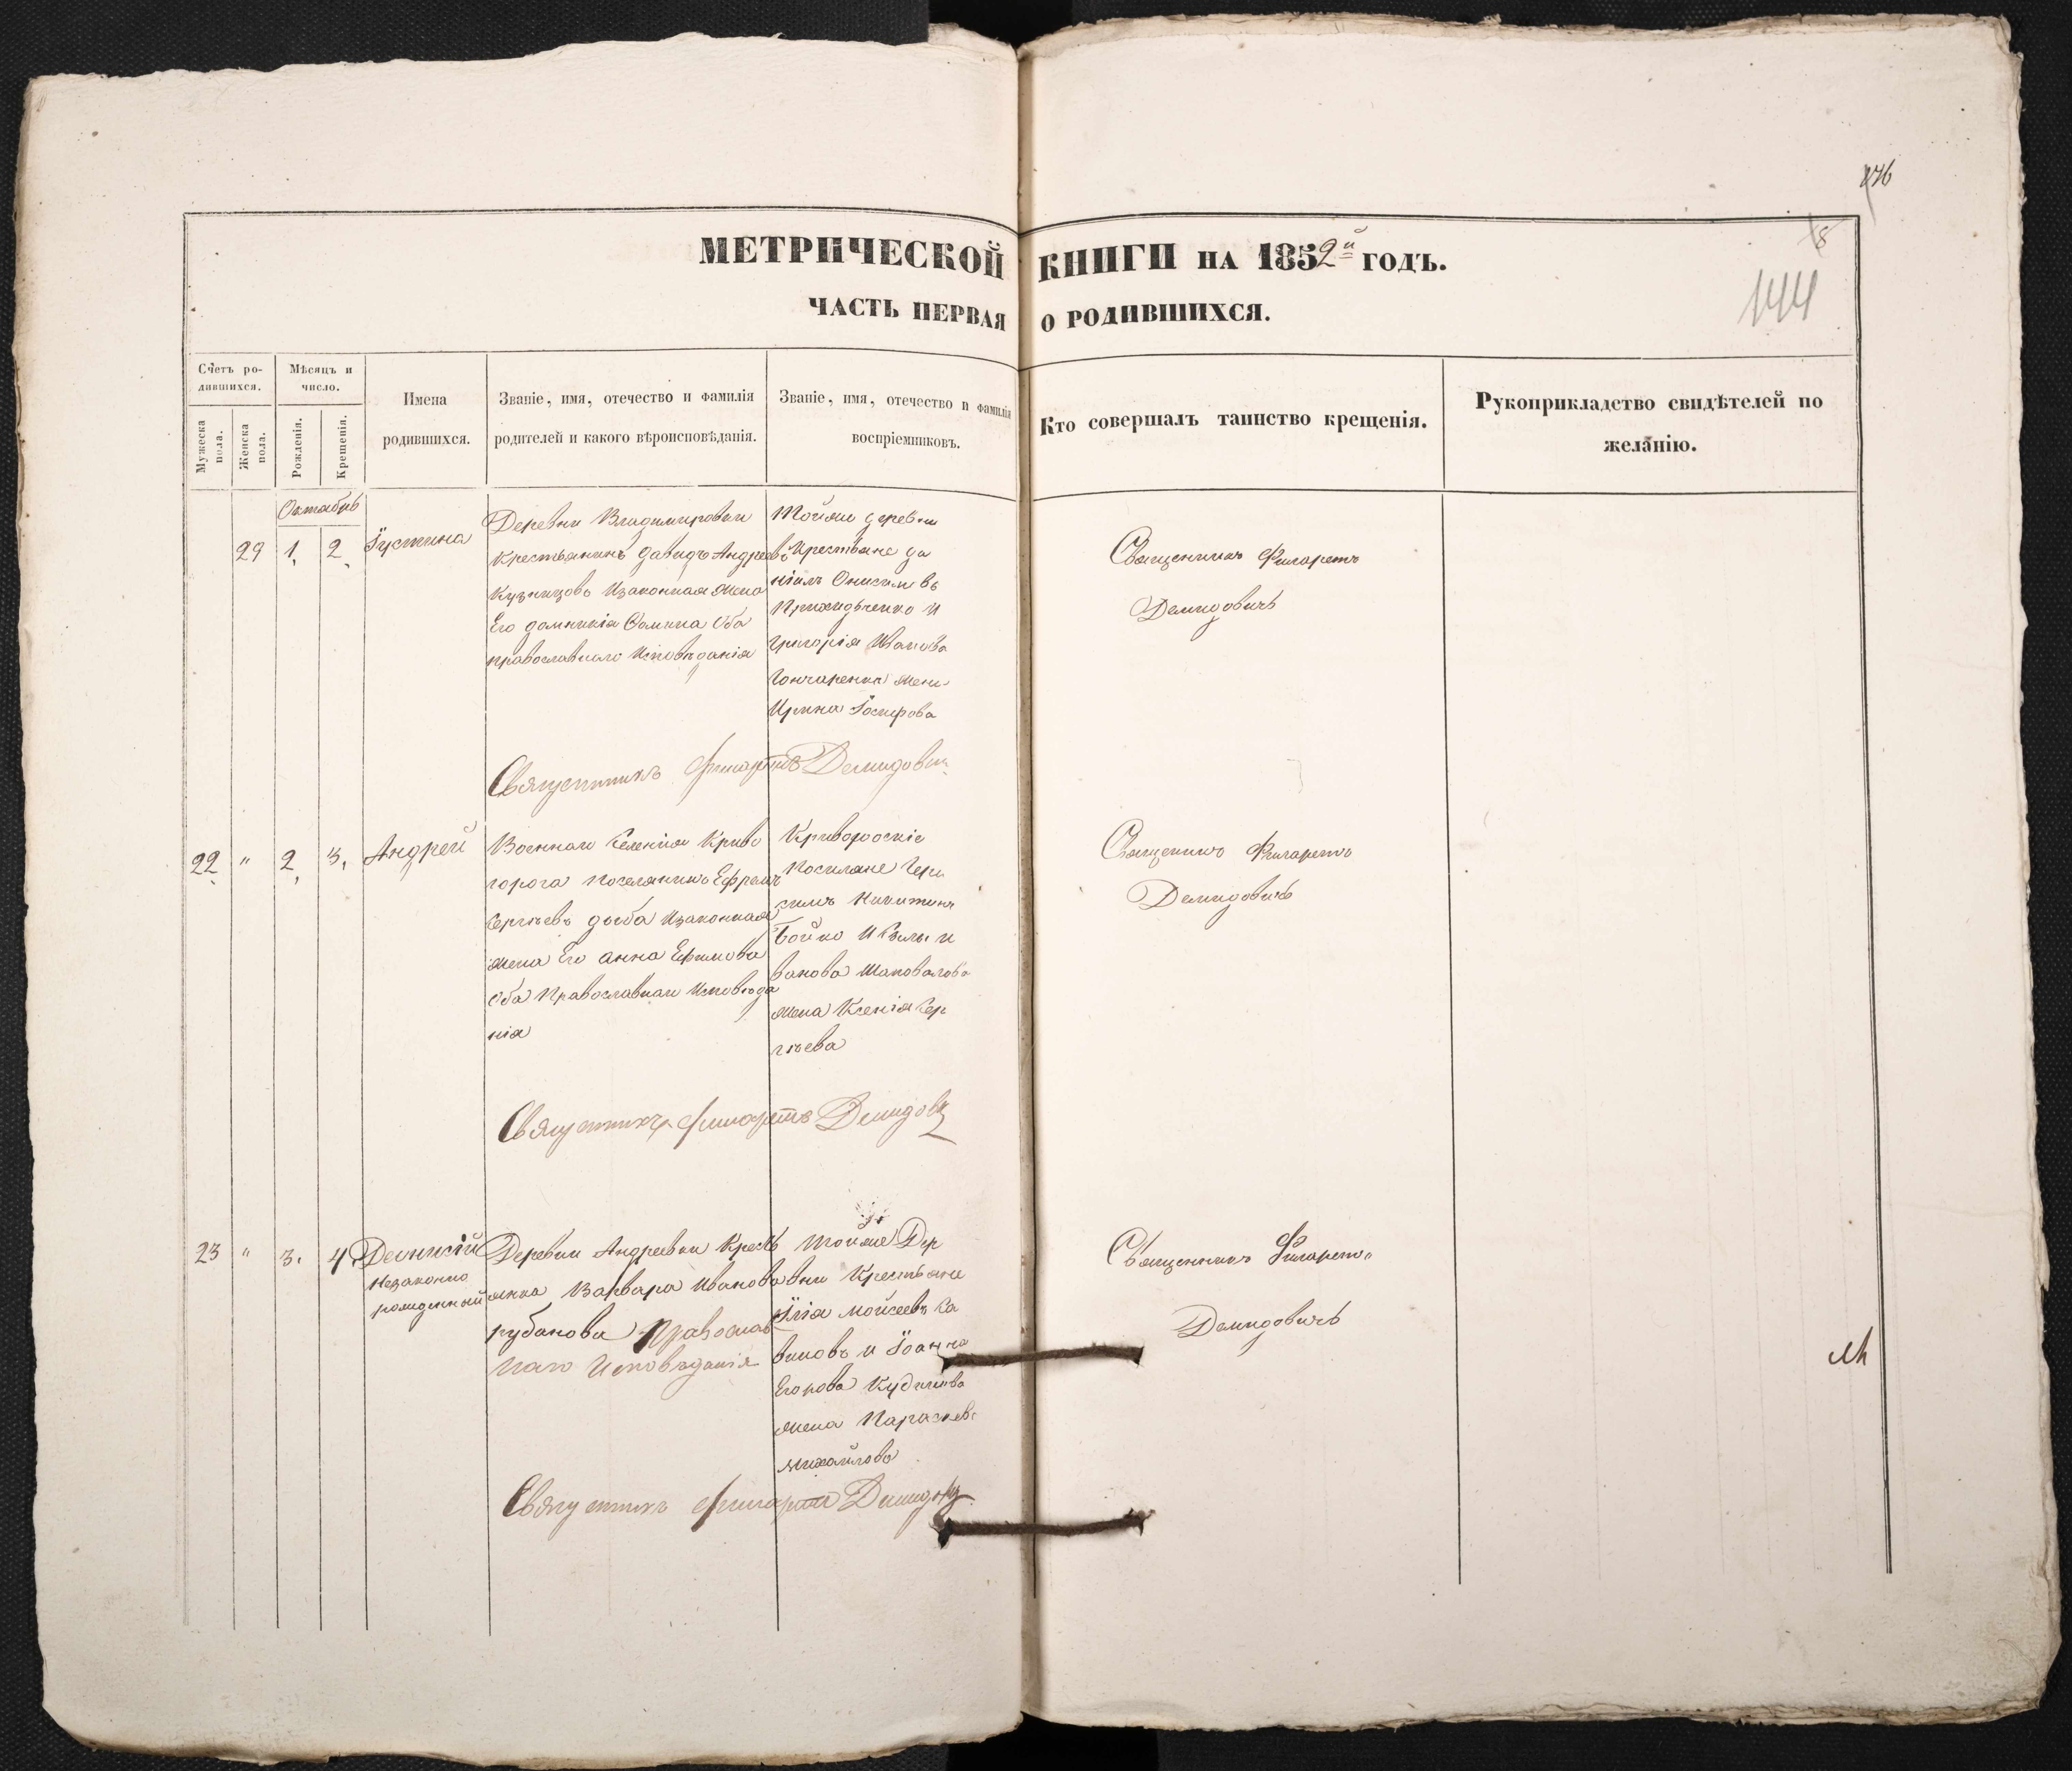 146
8
144
МЕТРИЧЕСКОЙ КНИГИ НА 1852й ГОДЪ.
ЧАСТЬ ПЕРВАЯ О РОДИВШИХСЯ.
Счетъ ро-
дившихся.
Мужеска
пола.
Женска
пола.
Мѣсяцъ и
число.
Рожденія.
Крещенія.
Имена
родившихся.
Званіе, имя, отечество и фамилія
родителей и какого вѣроисповѣданія.
Званіе, имя, отечество и фамилія
воспріемниковъ.
Кто совершалъ таинство крещенія.
Рукоприкладство свидѣтелей по
желанію.
Октябрь
29 1 2 Їустина
Деревни Владимировки
крестьянинъ Давидъ Андреевъ
Кузнецовъ Изаконная жена
Его домникія Фомина Оба
православнаго Исповѣданія
Тойже деревни
Крестьяне Да
ніилъ Онисимовъ
Приходченко И
Григорія Иванова
Гончаренка жена
Ирина Їосифова
Священникъ Филаретъ
Демидовичъ
Священникъ Филаретъ Демидович
22 " 2 3. Андрей
Военнаго Селенія Криво
горога поселянинъ Ефремъ
Сергѣевъ дзюба Изаконная
жена Его Анна Ефимова
Оба Православнаго Исповѣда
нія
Криворожскіе
Поселяне Гера
симъ Никитинъ
Бойко И
ванова Шаповалова
жена Ксенія Сер
гѣева
Священникъ Филаретъ
Демидовичъ
Священникъ Филаретъ Демидов
23 " 3. 4. Діонисій
Незаконно
рожденный
Деревни Андреевки Кресть
янка Варвара Иванова
рубанова Православ
наго Исповѣданія
Тойже Дер
вни Крестьяне
Їлія Моисеевъ Са
виновъ и Їоанна
Егорова
жена Параскева
Михайлова
Священникъ Филаретъ
Демидовичъ
Священникъ Филаретъ